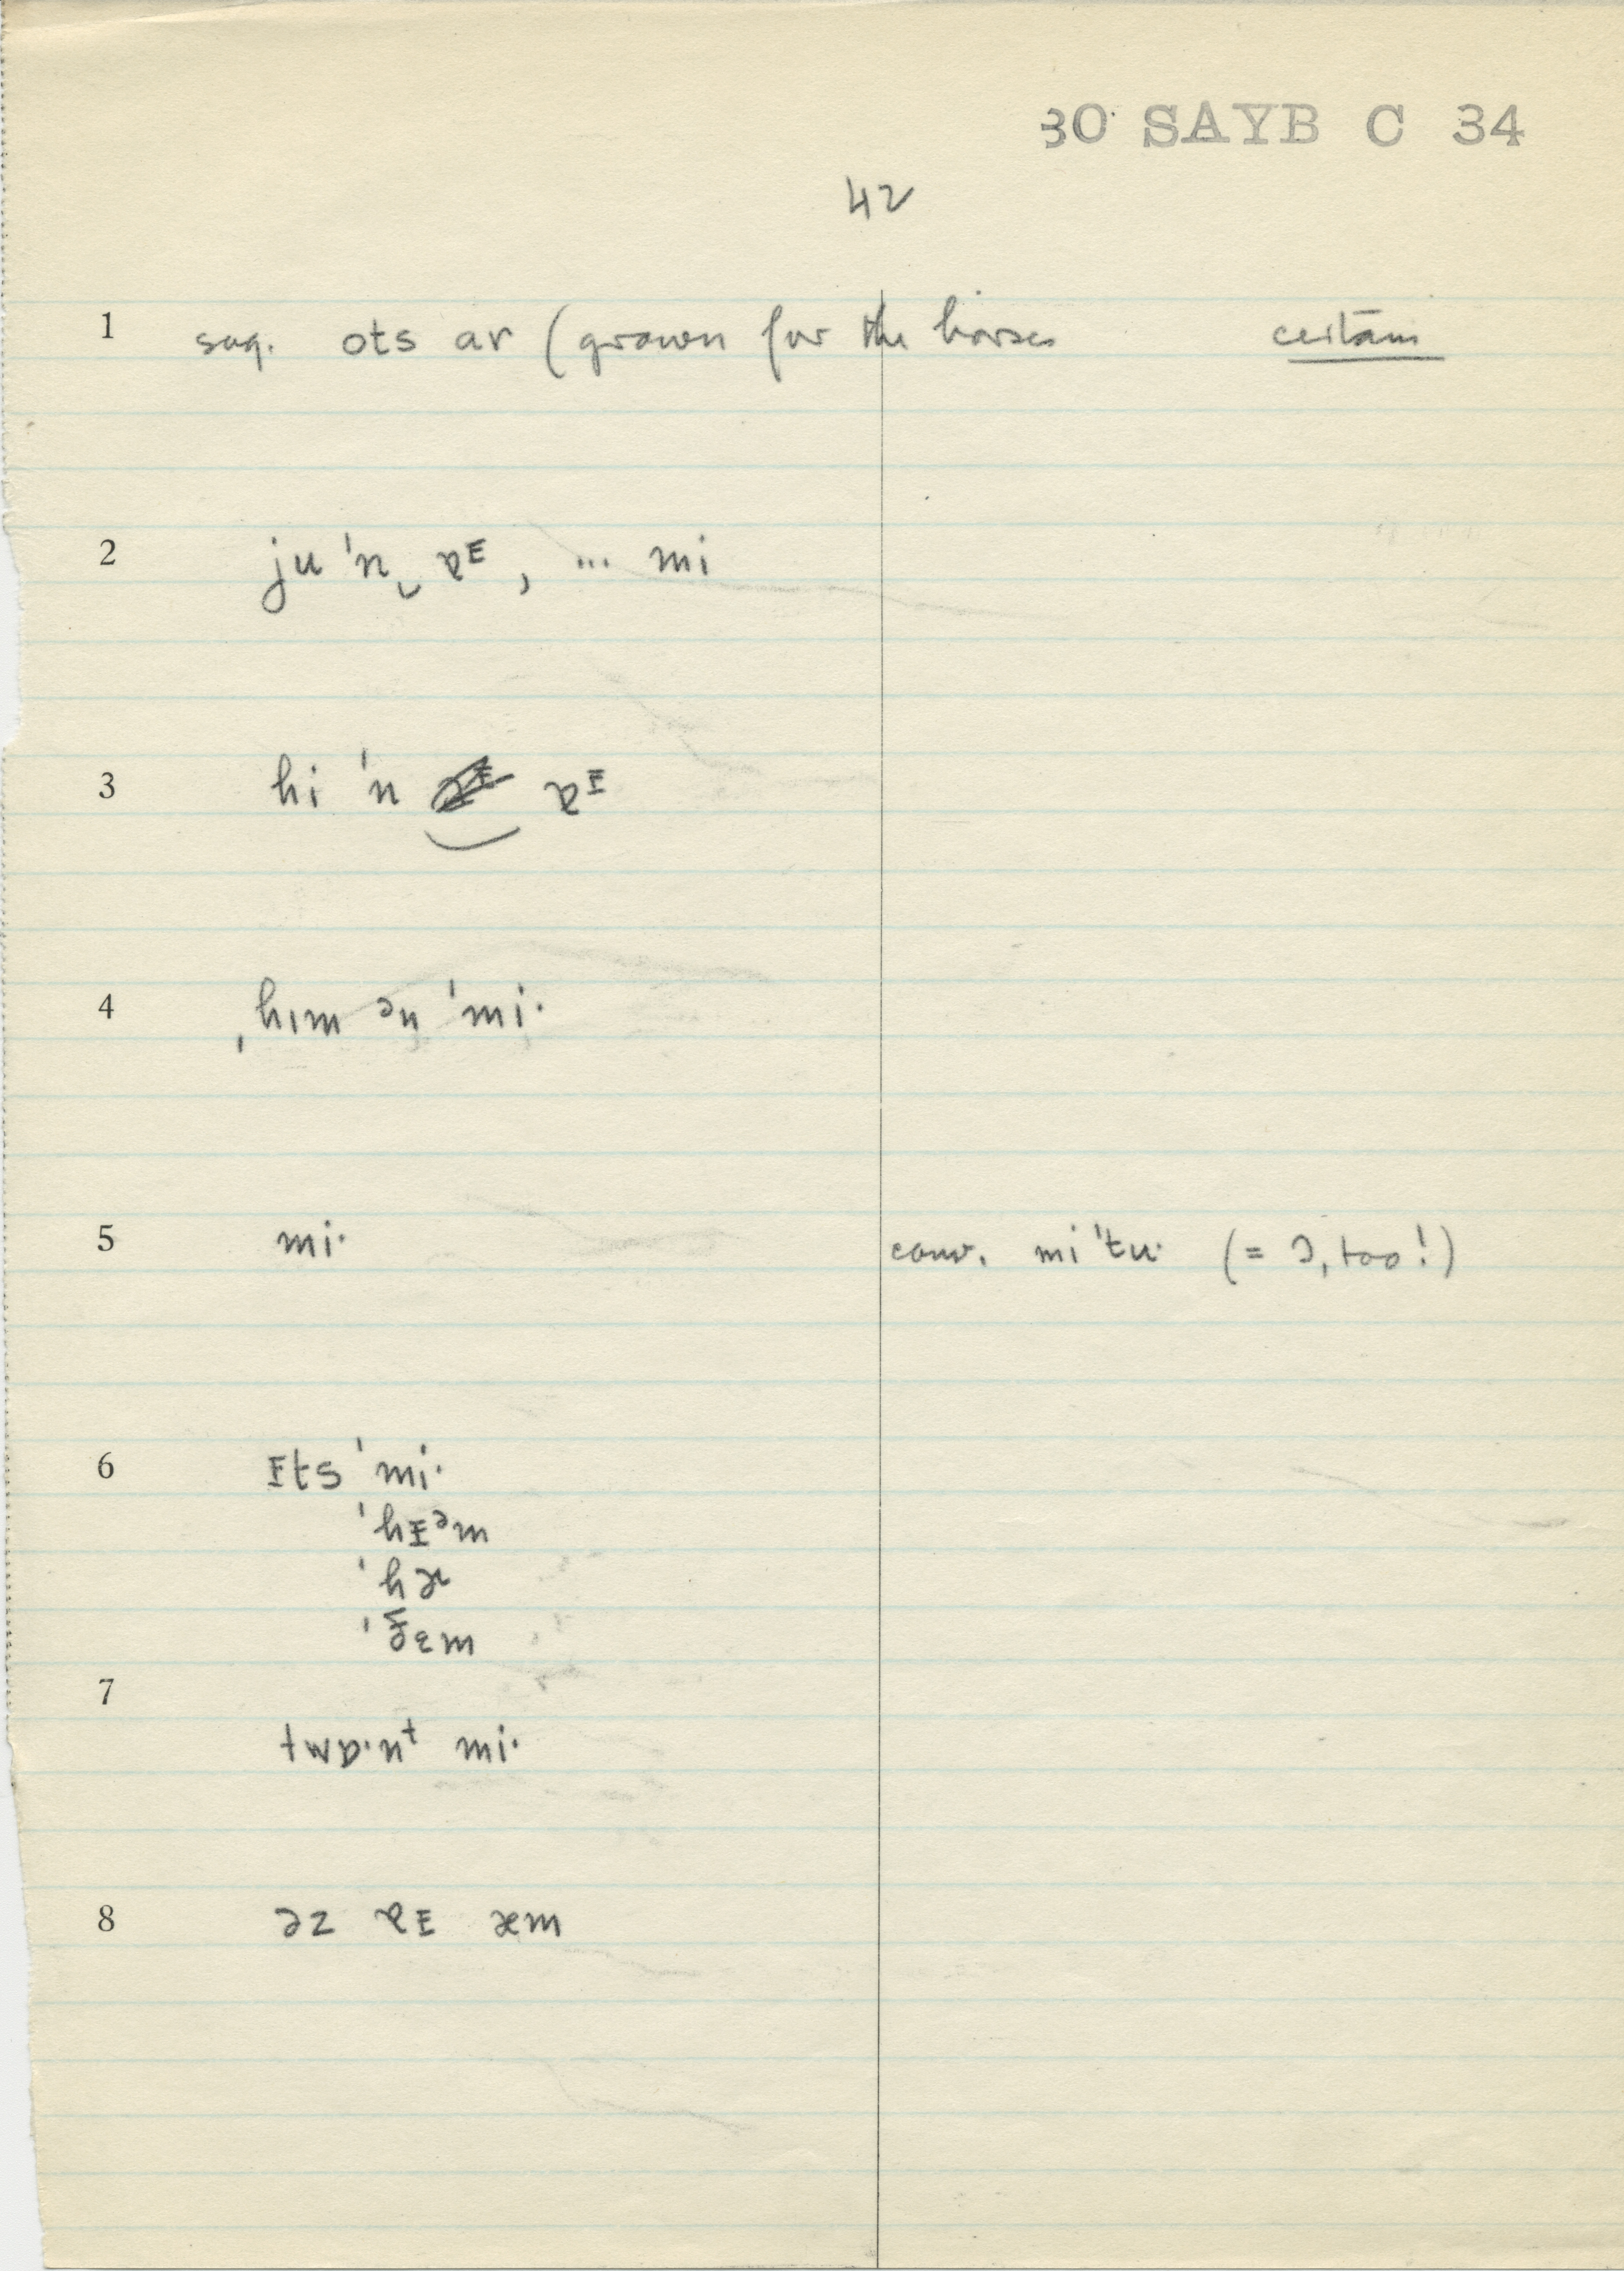 30 SAYB C 34
42
1 sug. ots ar (grown for the horses certain
2 ju ˈn‿ɐᴵ, ... mi
3 hi ˈn ɐᴵ
4 ˌhɪm ən ˈmi·
5 mi· conv. mi ˈtu· (= I, too!)
6 ɪts ˈmi·
ˈhɪᵊm
ˈhɚ
ˈð̬ɛm
7
twɒ·nᵗ mi·
8 əz ɐɪ æm